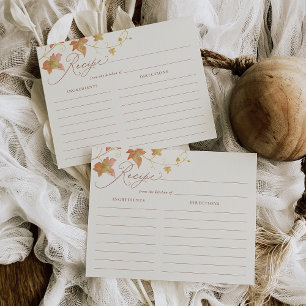 Recipe
from the kitchen of
INGREDIENTS DIRECTIONS
Recipe
from the kitchen of
INGREDIENTS DIRECTIONS